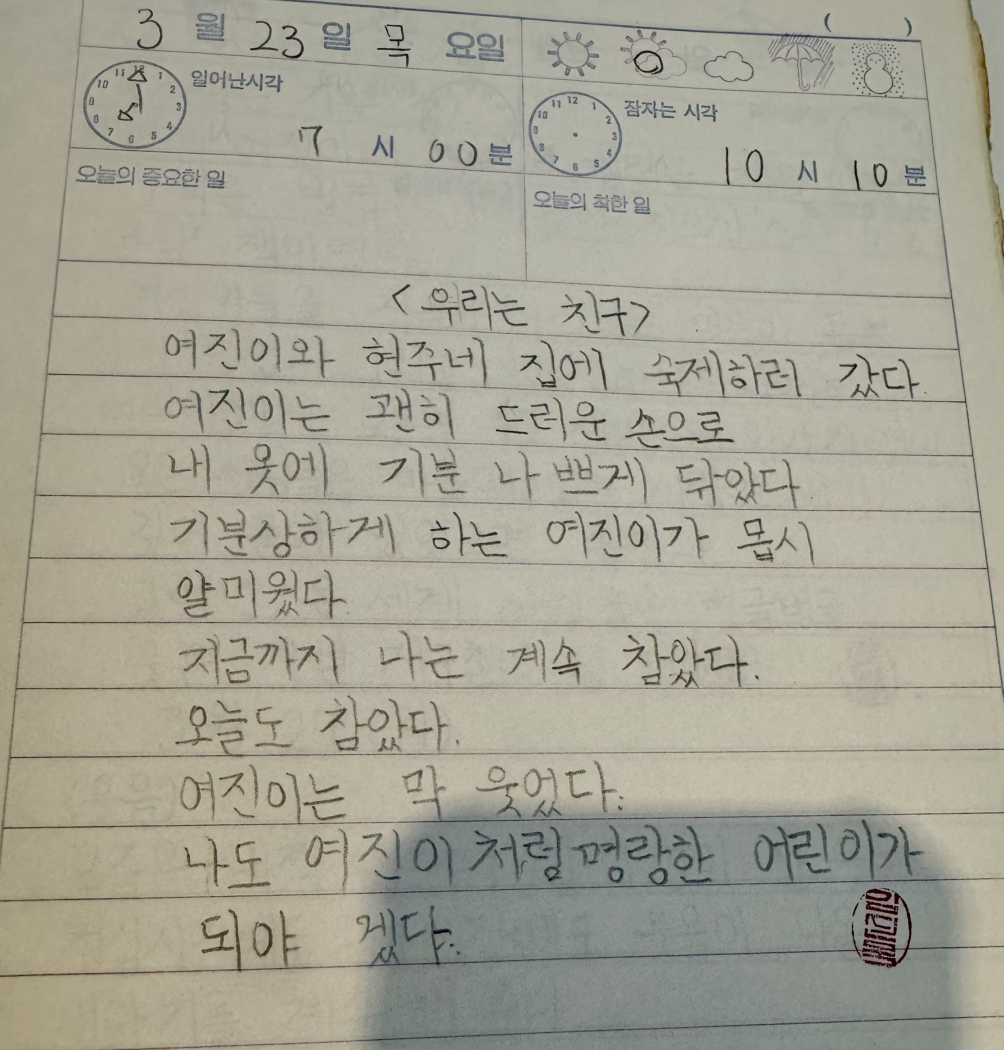 ( )
3 월 23 일 목 요일
11 12 1 2 3 4 5 6 7 8 9 10
일어난시각
7 시 00 분
11 12 1 2 3 4 5 6 7 8 9 10
잠자는 시각
10 시 10 분
오늘의 중요한 일
오늘의 착한 일
<우리는 친구>
여진이와 현주네 집에 숙제하러 갔다.
여진이는 괜히 드러운 손으로
내 옷에 기분 나쁘게 닦았다
기분상하게 하는 여진이가 몹시
얄미웠다.
지금까지 나는 계속 참았다.
오늘도 참았다.
여진이는 막 웃었다.
나도 여진이처럼명랑한 어린이가
되야 겠다.